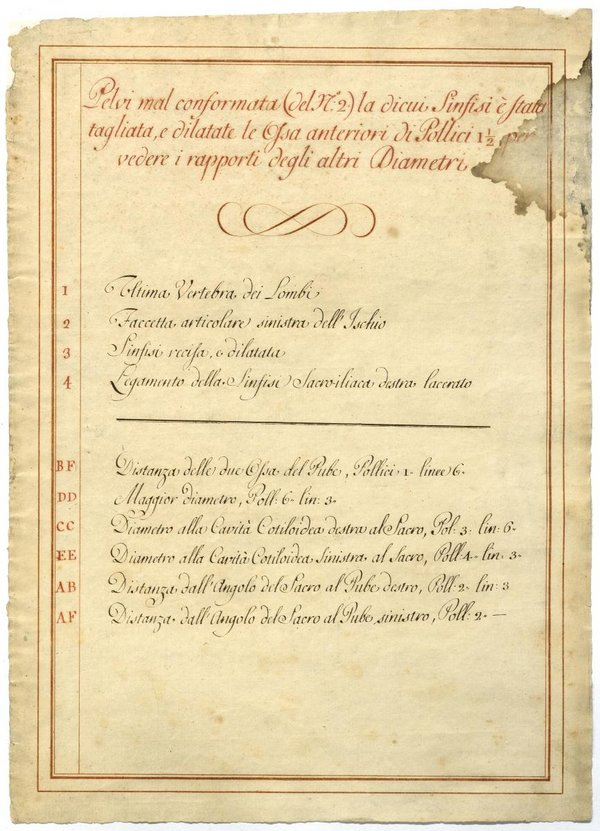 Pelvi mal conformata (del N.º 2) la di cui Sinfisi è stata
tagliata, e dilatate le Ossa anteriori di Pollici 1½ per
vedere i rapporti degli altri Diametri
1 Ultima Vertebra dei Lombi
2 Faccetta articolare sinistra dell' Ischio
3 Sinfisi recisa, e dilatata
4 Legamento della Sinfisi Sacro-iliaca destra lacerato
BF Distanza delle due Ossa del Pube, Pollici 1 - linee 6 -
DD Maggior diametro, Poll: 6 - lin: 3 -
CC Diametro alla Cavità Cotiloidea destra al Sacro, Pol: 3 - lin: 6 -
EE Diametro alla Cavità Cotiloidea Sinistra al Sacro, Poll 4 - lin: 3 -
AB Distanza dall' Angolo del Sacro al Pube destro, Poll: 2 - lin: 3
AF Distanza dall' Angolo del Sacro al Pube sinistro, Poll: 2 - —